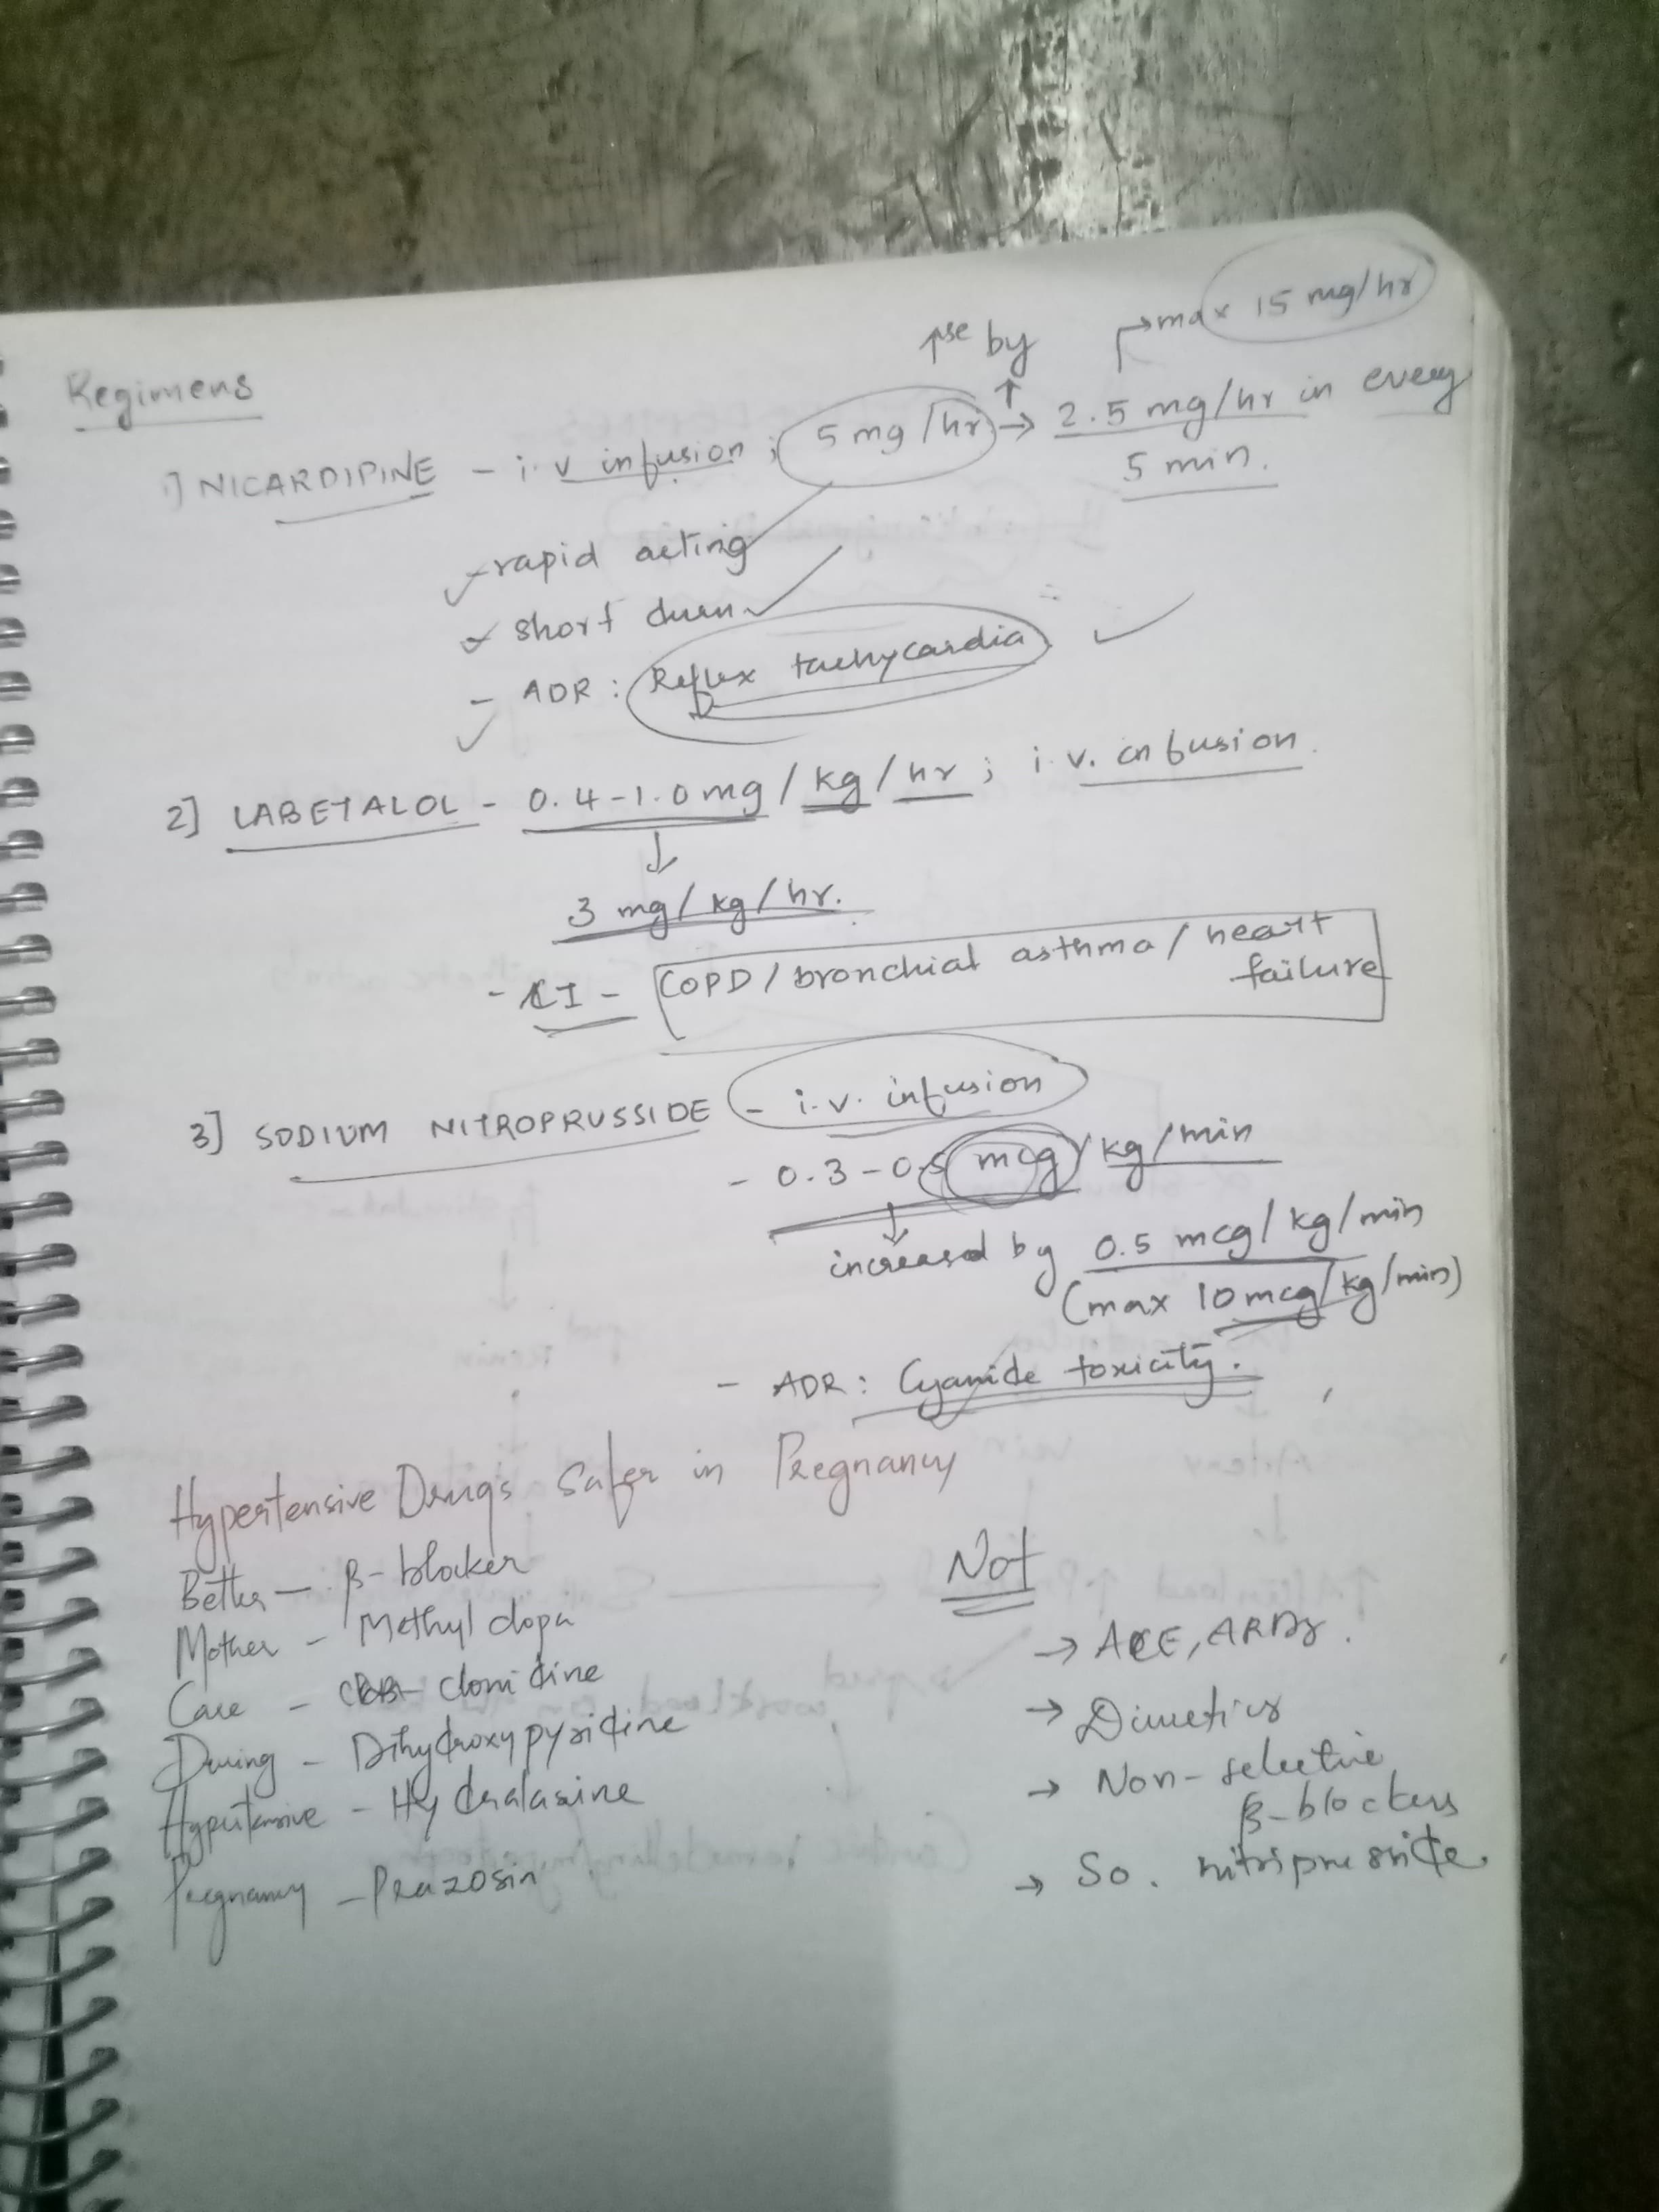 ↑se by
→max 15 mg/hr
Regimens
1] NICARDIPINE - i.v infusion ; 5 mg/hr → 2.5 mg/hr in every
5 min.
- rapid acting
- short durn
- ADR : Reflex tachycardia
2] LABETALOL - 0.4-1.0 mg/kg/hr ; i.v. infusion.
↓
3 mg/kg/hr.
- CI - COPD / bronchial asthma / heart
failure
3] SODIUM NITROPRUSSIDE - i.v. infusion
- 0.3-0.5 mcg/kg/min
↓
increased by 0.5 mcg/kg/min
(max 10 mcg/kg/min)
- ADR : Cyanide toxicity.
Hypertensive Drugs Safer in Pregnancy
Not
Better - β-blocker
Mother - Methyl dopa
→ ACE, ARBs.
Care - clonidine
→ Diuretics
During - Dihydroxypyridine
→ Non-selective
β-blockers
Hypertensive - Hydralasine
→ So. nitriprusside.
Pregnancy - Prazosin